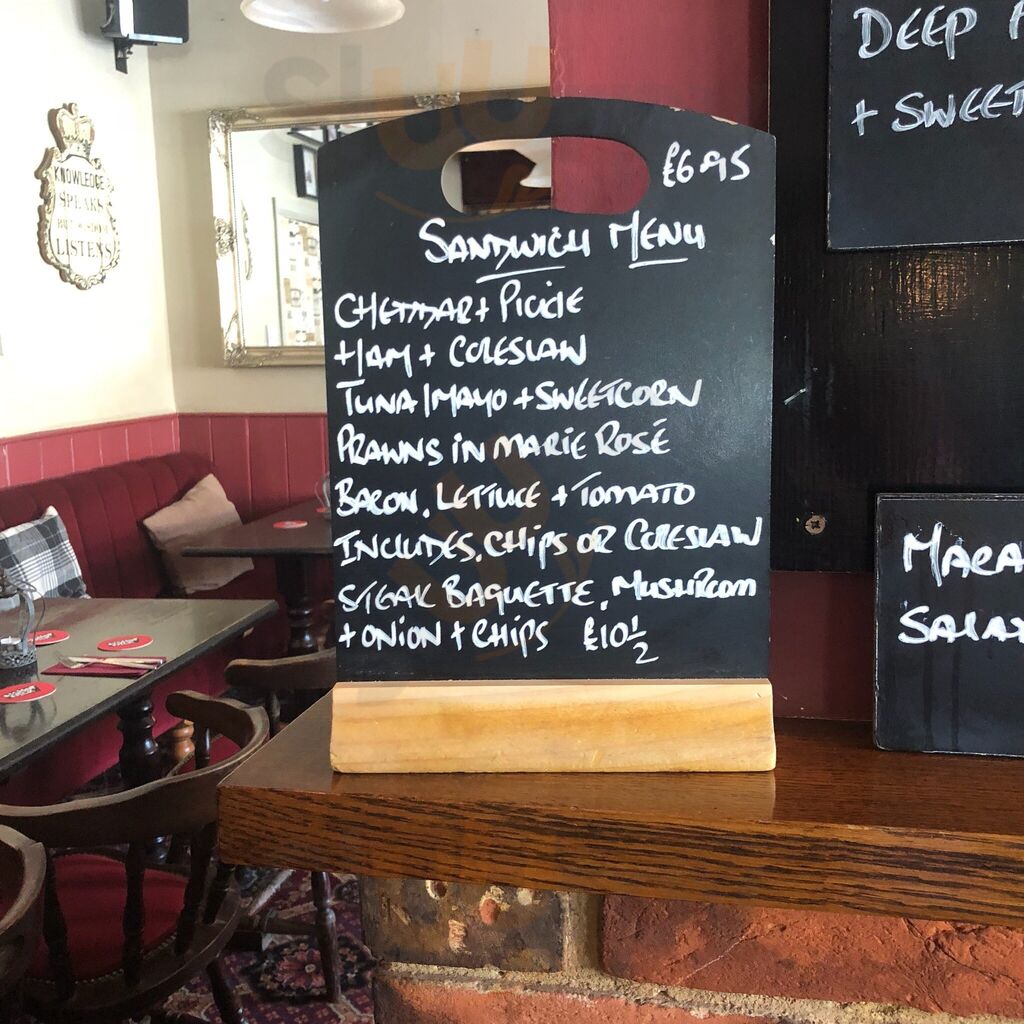 £6.95
SANDWICH MENU
CHEDDAR + PICKLE
HAM + COLESLAW
TUNA/MAYO + SWEETCORN
PRAWNS IN MARIE ROSÉ
BACON, LETTUCE + TOMATO
INCLUDES, CHIPS OR COLESLAW
STEAK BAGUETTE, MUSHROOM
+ ONION + CHIPS £10 1/2
DEEP
+ SWEET
KNOWLEDGE
SPEAKS
BUT WISDOM
LISTENS